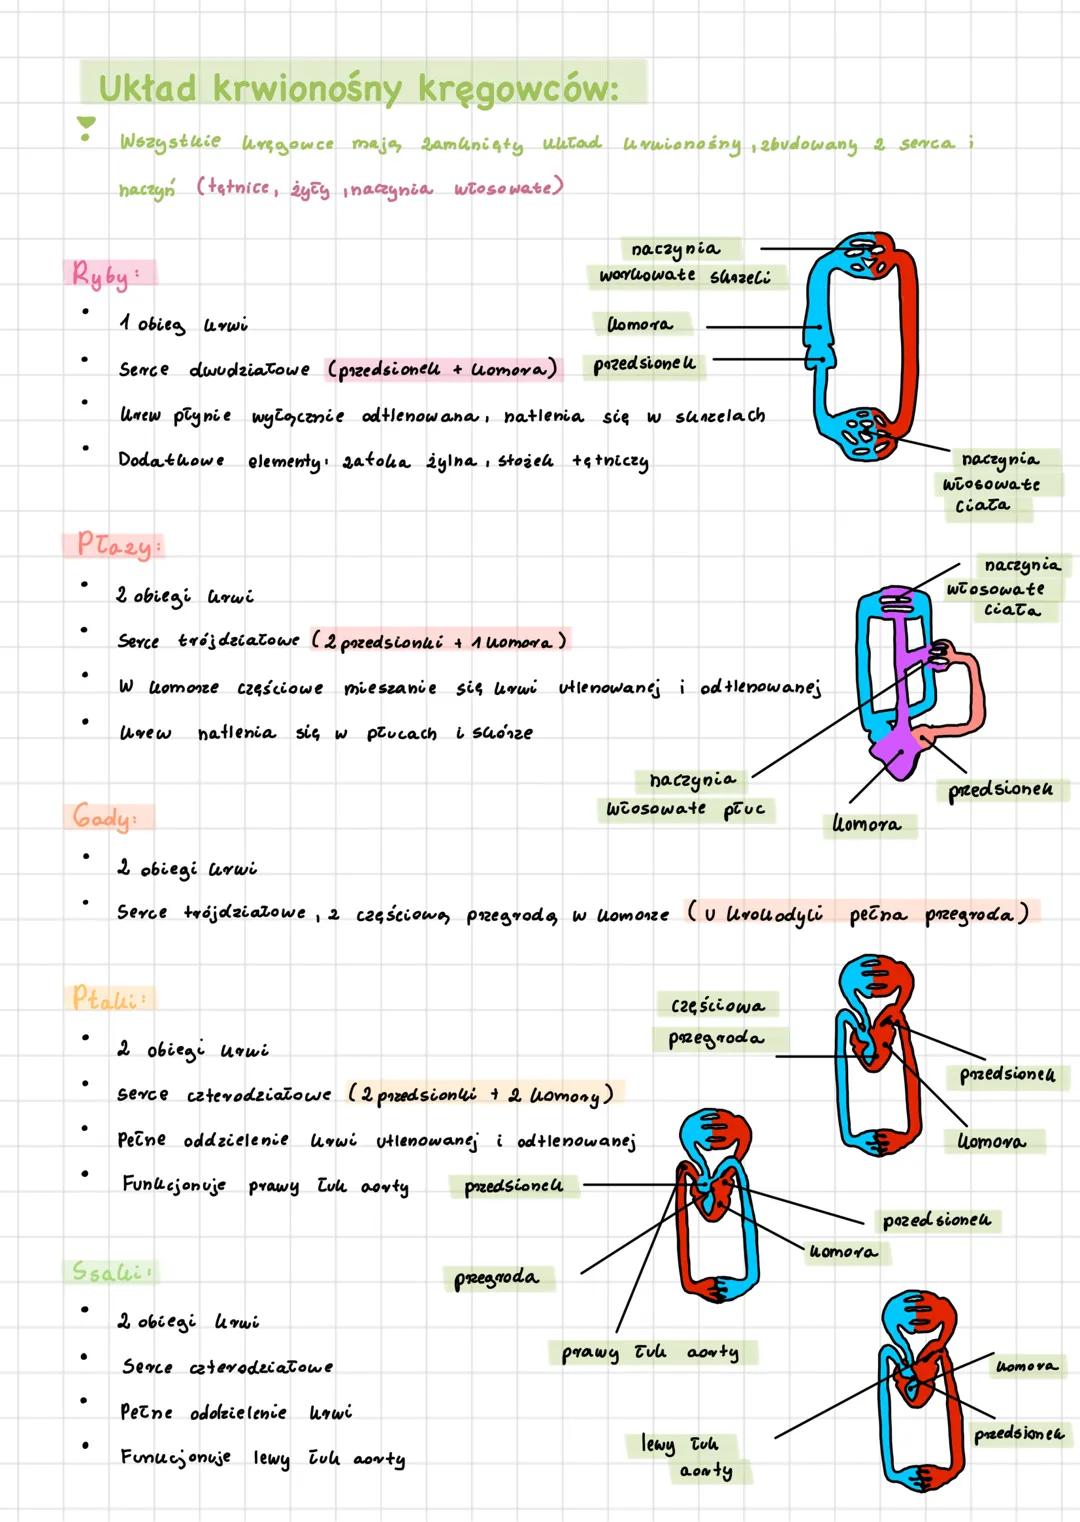 Układ krwionośny kręgowców:
Wszystkie kręgowce mają zamknięty układ krwionośny, zbudowany z serca i
naczyń (tętnice, żyły, naczynia włosowate)
Ryby:
1 obieg krwi
Serce dwudziałowe (przedsionek + komora)
Krew płynie wyłącznie odtlenowana, natlenia się w skrzelach
Dodatkowe elementy: zatoka żylna, stożek tętniczy
naczynia
workowate skrzeli
komora
przedsionek
naczynia
włosowate
ciała
Płazy:
2 obiegi krwi
Serce trójdziałowe (2 przedsionki + 1 komora)
W komorze częściowe mieszanie się krwi utlenowanej i odtlenowanej
Krew natlenia się w płucach i skórze
naczynia
włosowate
ciała
naczynia
włosowate płuc
komora
przedsionek
Gady:
2 obiegi krwi
Serce trójdziałowe, z częściową przegrodą w komorze (u krokodyli pełna przegroda)
częściowa
przegroda
przedsionek
komora
Ptaki:
2 obiegi krwi
serce czterodziałowe (2 przedsionki + 2 komory)
Pełne oddzielenie krwi utlenowanej i odtlenowanej
Funkcjonuje prawy łuk aorty
przedsionek
przedsionek
komora
przegroda
prawy łuk aorty
Ssaki:
2 obiegi krwi
Serce czterodziałowe
Pełne oddzielenie krwi
Funkcjonuje lewy łuk aorty
komora
przedsionek
lewy łuk
aorty